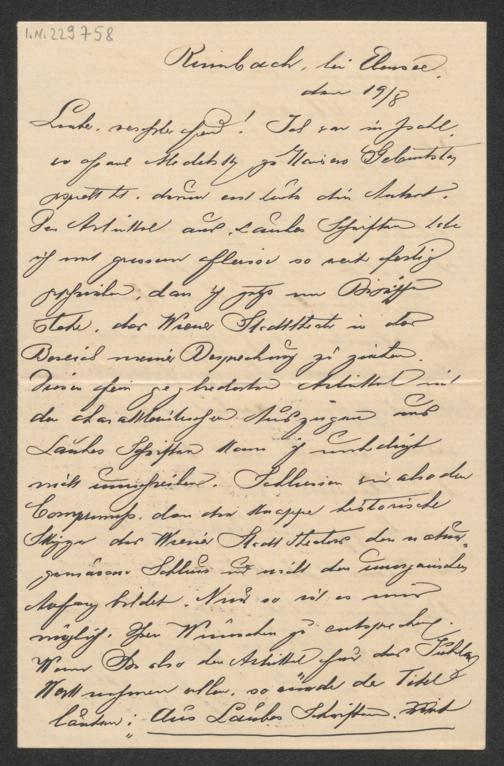 I.N. 229758
Rinnbach, bei Ebensee,
den 19/8
Lieber, verehrter Freund! Ich war in Ischl,
wo Frau Medelsky zu Kaisers Geburtstag
, darum erst heute die Antwort.
Den Artikel aus Laubes Schriften habe
ich mit grossem Fleisse so weit fertig
geschrieben, dass ich jetzt am
stehe, das Wiener Stadttheater in den
Bereich meiner Besprechung zu ziehen.
Diesen fein gegliederten Artikel mit
den charakteristischen Auszügen aus
Laubes Schriften kann ich unbedingt
nicht umschreiben. Schliessen wir also den
Compromiss, dass der knappe historische
Skizze des Wiener Stadt Theaters den natur-
gemässen Schluss und nicht den unorganischen
Anfang bildet. Nur so ist es mir
möglich, Ihren Wünschen zu entsprechen.
Wenn Sie also den Artikel für das
Werk nehmen wollen, so würde der Titel
lauten: "Aus Laubes Schriften.